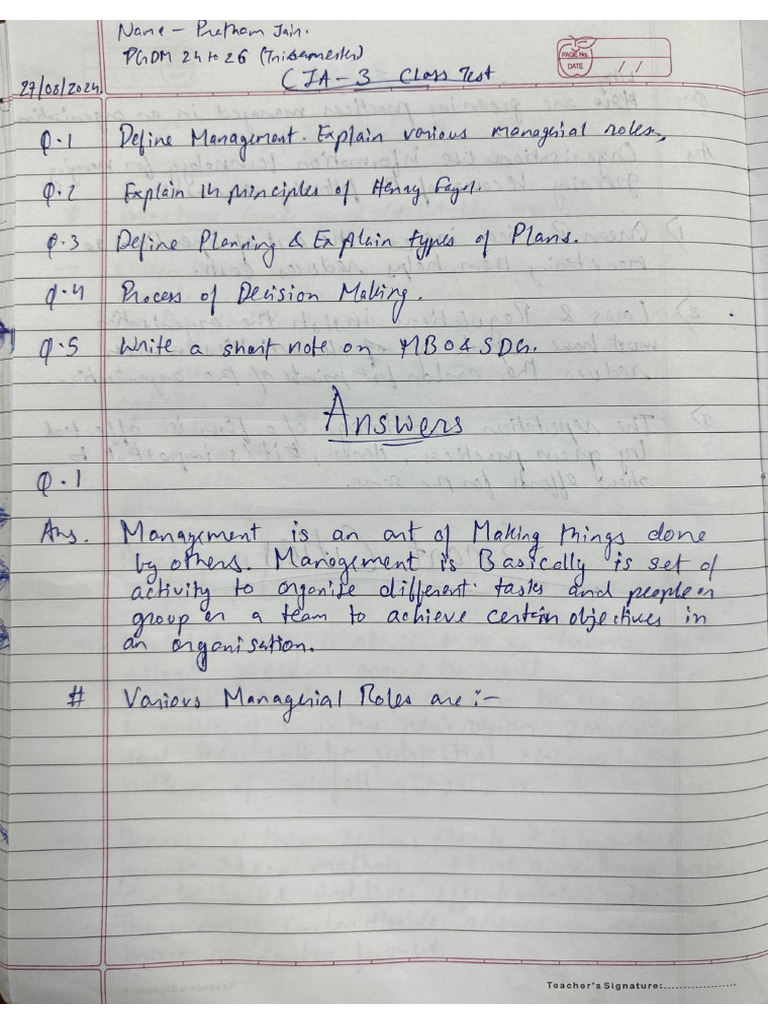 Name - Pratham Jain.
PGDM 24 to 26 (Trisemester)
PAGE No.
DATE / /
27/08/2024.
CIA-3 Class Test
Q.1 Define Management. Explain various managerial roles.
Q.2 Explain 14 principles of Henry Fayol.
Q.3 Define Planning & Explain types of Plans.
Q.4 Process of Decision Making.
Q.5 Write a short note on MBO & SDG.
Answers
Q.1
Ans. Management is an art of Making things done
by others. Management is Basically is set of
activity to organise different tasks and people or
group or a team to achieve certain objectives in
an organisation.
# Various Managerial Roles are :-
Teacher's Signature: